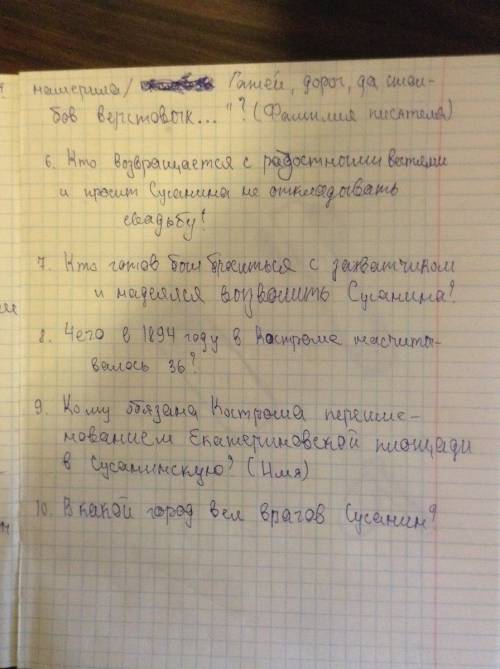 нашерила/ Гатей, дорог, да стол-
бов верстовых..."? (Фамилия писателя)
6. Кто возвращается с радостными вестями
и просит Сусанина не откладывать
свадьбу?
7. Кто готов был броситься с захватчиком
и надеялся вызволить Сусанина?
8. Чего в 1894 году в Костроме насчиты-
валось 36?
9. Кому обязана Кострома переиме-
нованием Екатериновской площади
в Сусанинскую? (Имя)
10. В какой город вел врагов Сусанин?